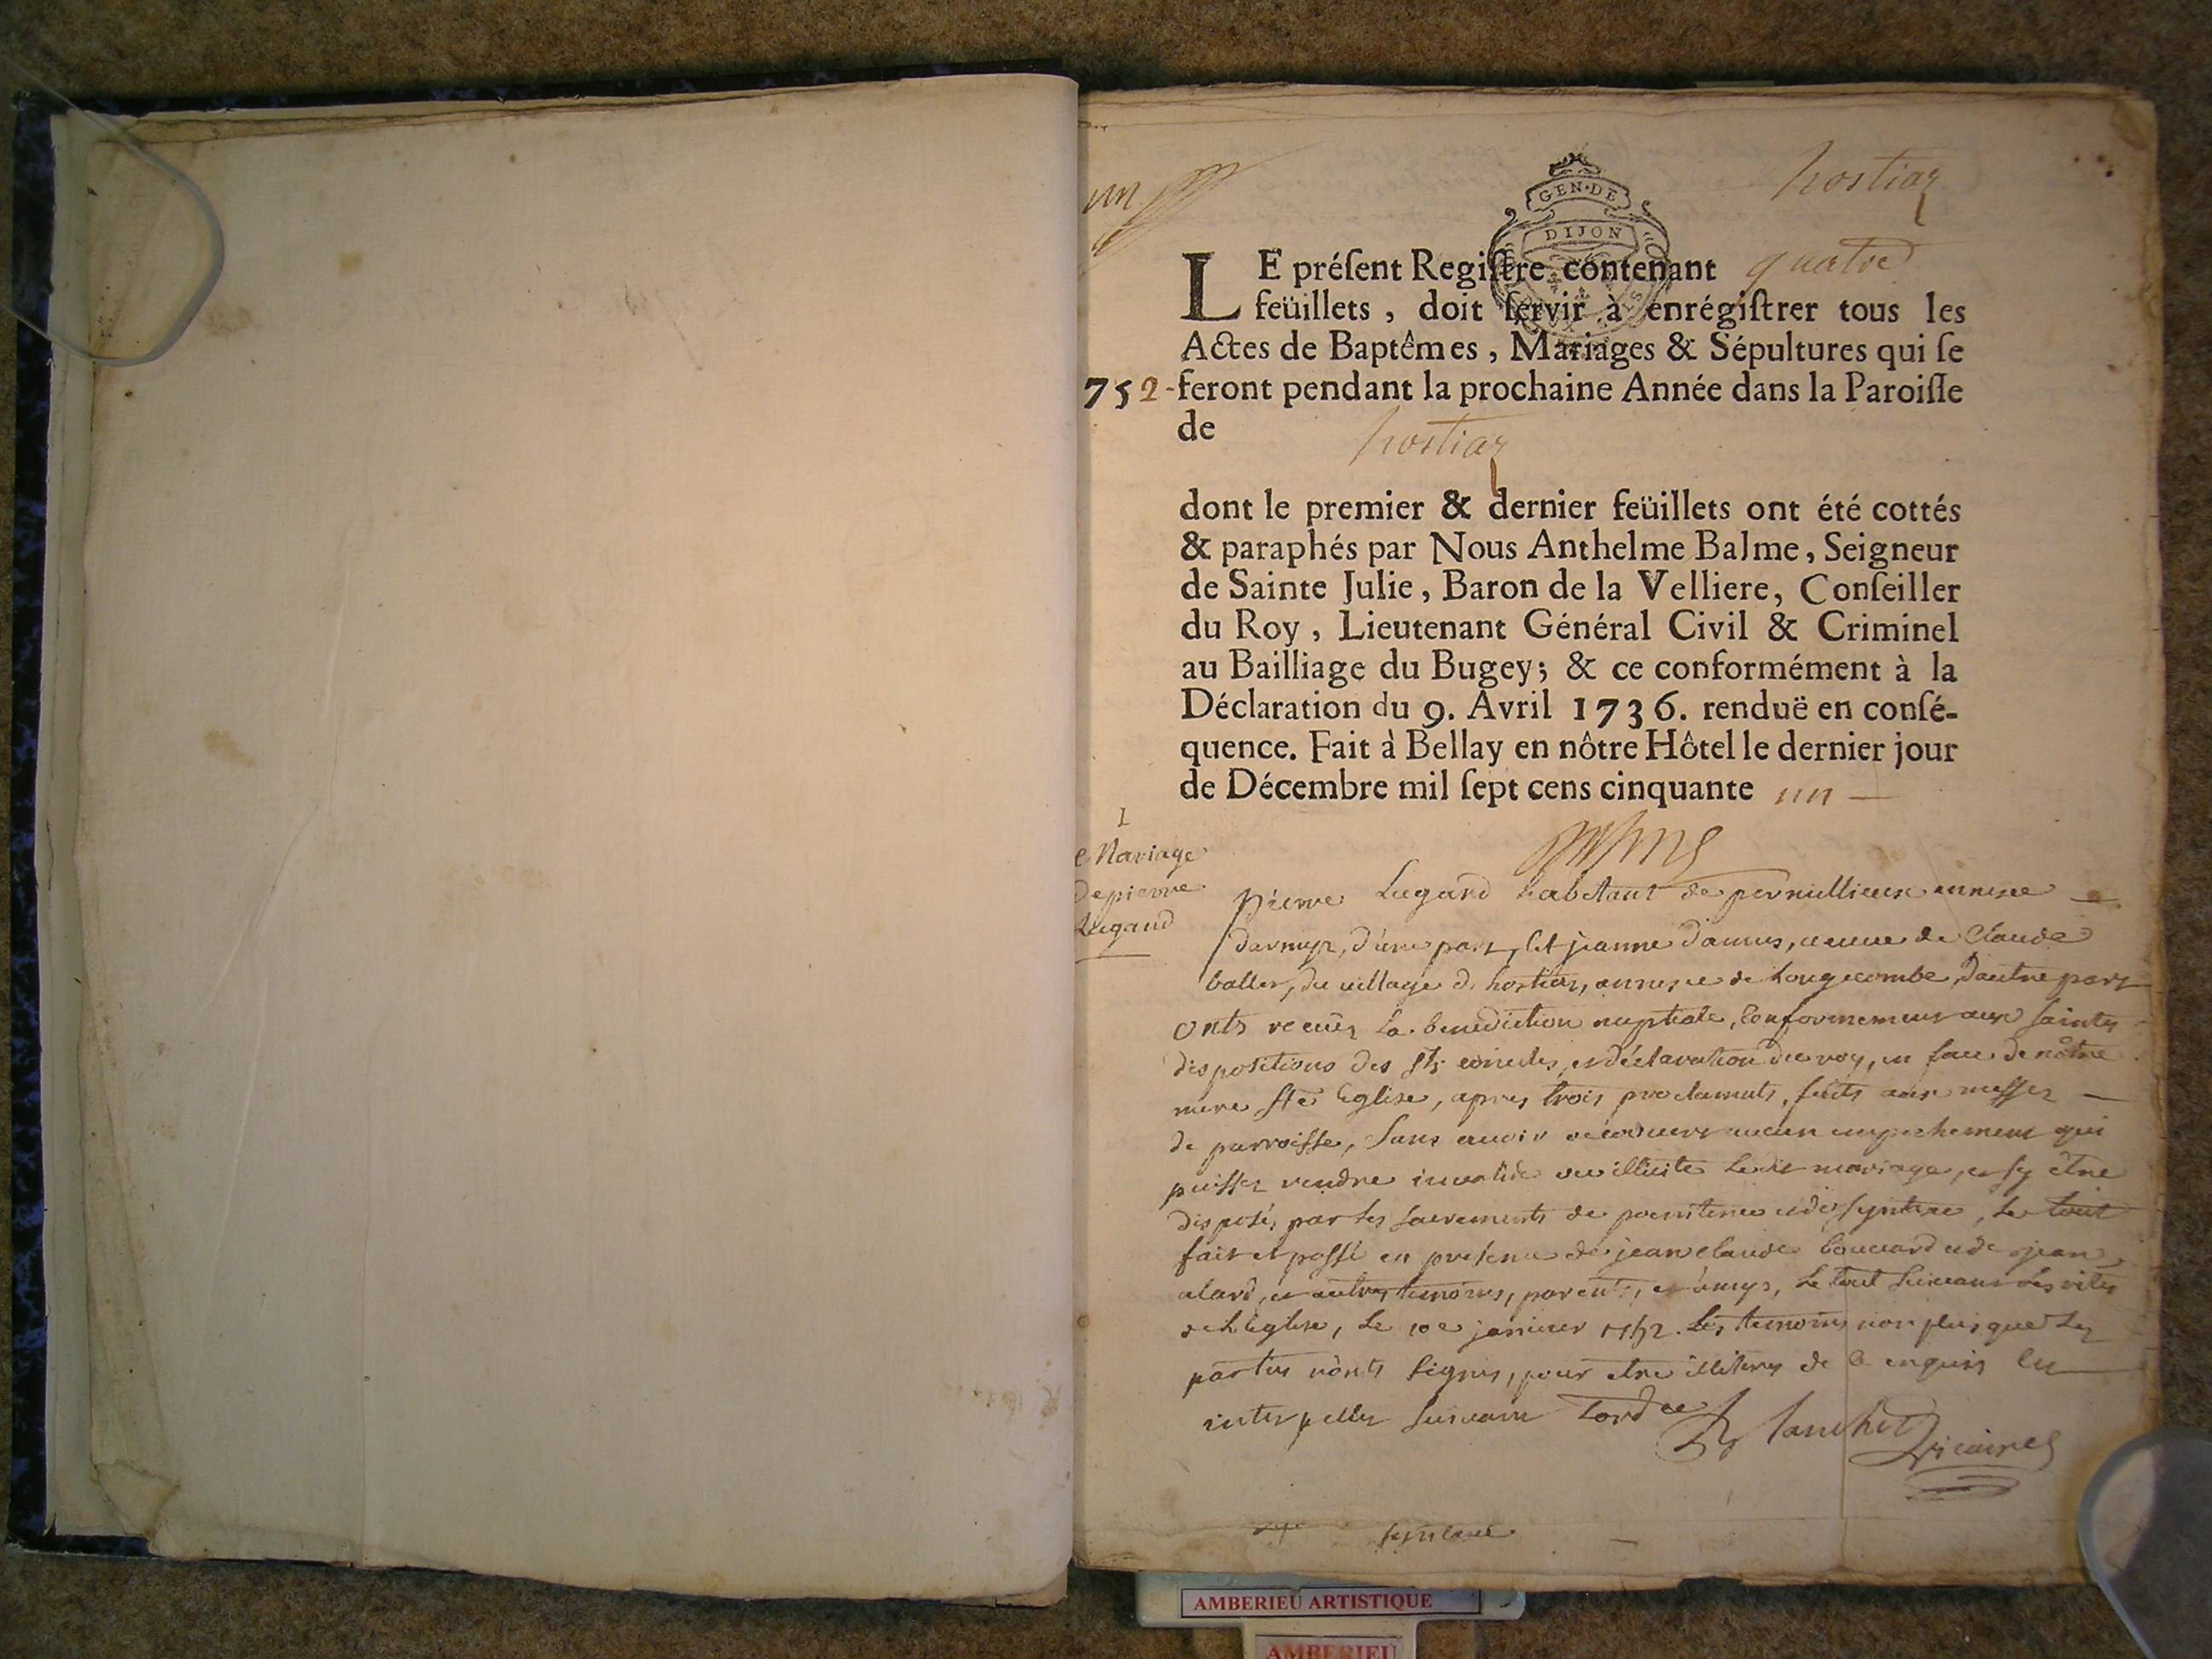 un
hostiaz
GEN·DE
DIJON
LE préſent Regiſtre contenant quatre
feüillets , doit ſervir à enrégiſtrer tous les
Actes de Baptêmes , Mariages & Sépultures qui ſe
752 - feront pendant la prochaine Année dans la Paroiſſe
de hostiaz
dont le premier & dernier feüillets ont été cottés
& paraphés par Nous Anthelme Balme, Seigneur
de Sainte Julie, Baron de la Velliere, Conſeiller
du Roy , Lieutenant Général Civil & Criminel
au Bailliage du Bugey; & ce conformément à la
Déclaration du 9. Avril 1736. renduë en conſé-
quence. Fait à Bellay en nôtre Hôtel le dernier jour
de Décembre mil ſept cens cinquante un
1
Mariage
de pierre
Lugand
Pierre Lugand habitant de annexe
d'une part, et jeanne veuve de Claude
ballet, du village d. hostiaz, annexe de Longecombe, d'autre part
onts la benediction nuptiale, conformement aux saintes
dispositions des sts conciles, et déclaration du roy, en face de nôtre
mere ste Eglise, apres trois proclamats, faits aux messes
de parroisse, sans avoir decouvert aucun empechement qui
puisse rendre invalide ou illicite ledit mariage, et sy être
disposés par les sacrements de penitence et de le tout
fait et passé en presence de jean claude bouvard et de jean
alard, et autres temoins, parents, et amys, le tout suivant les rites
de l'Eglise, le 10e janvier 1752. les temoins non plus que les
parties n'onts signés, pour etre illiteres de ce enquis et
interpelles suivant l'ordce
Blanchet vicaire